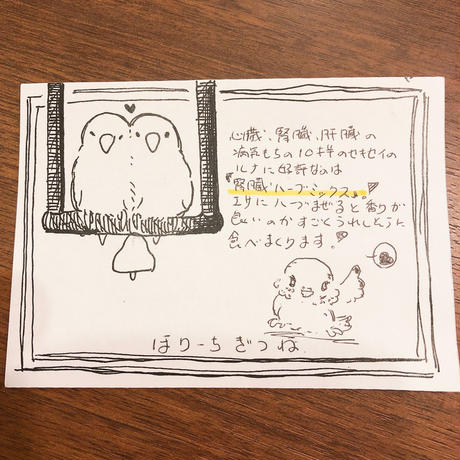 心臓、腎臓、肝臓の
病気もちの10才のセキセイの
ルナに好評なのは
『腎臓ハーブミックス』
エサにハーブまぜると香りが
良いのかすごくうれしそうに
食べまくります。
ほりーちぎつね